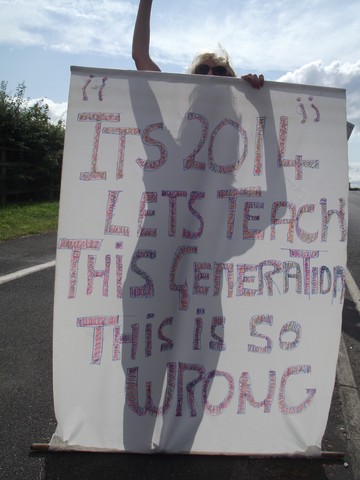 "ITS 2014"
LETS TEACH
THiS GENERATION
THiS iS SO
WRONG